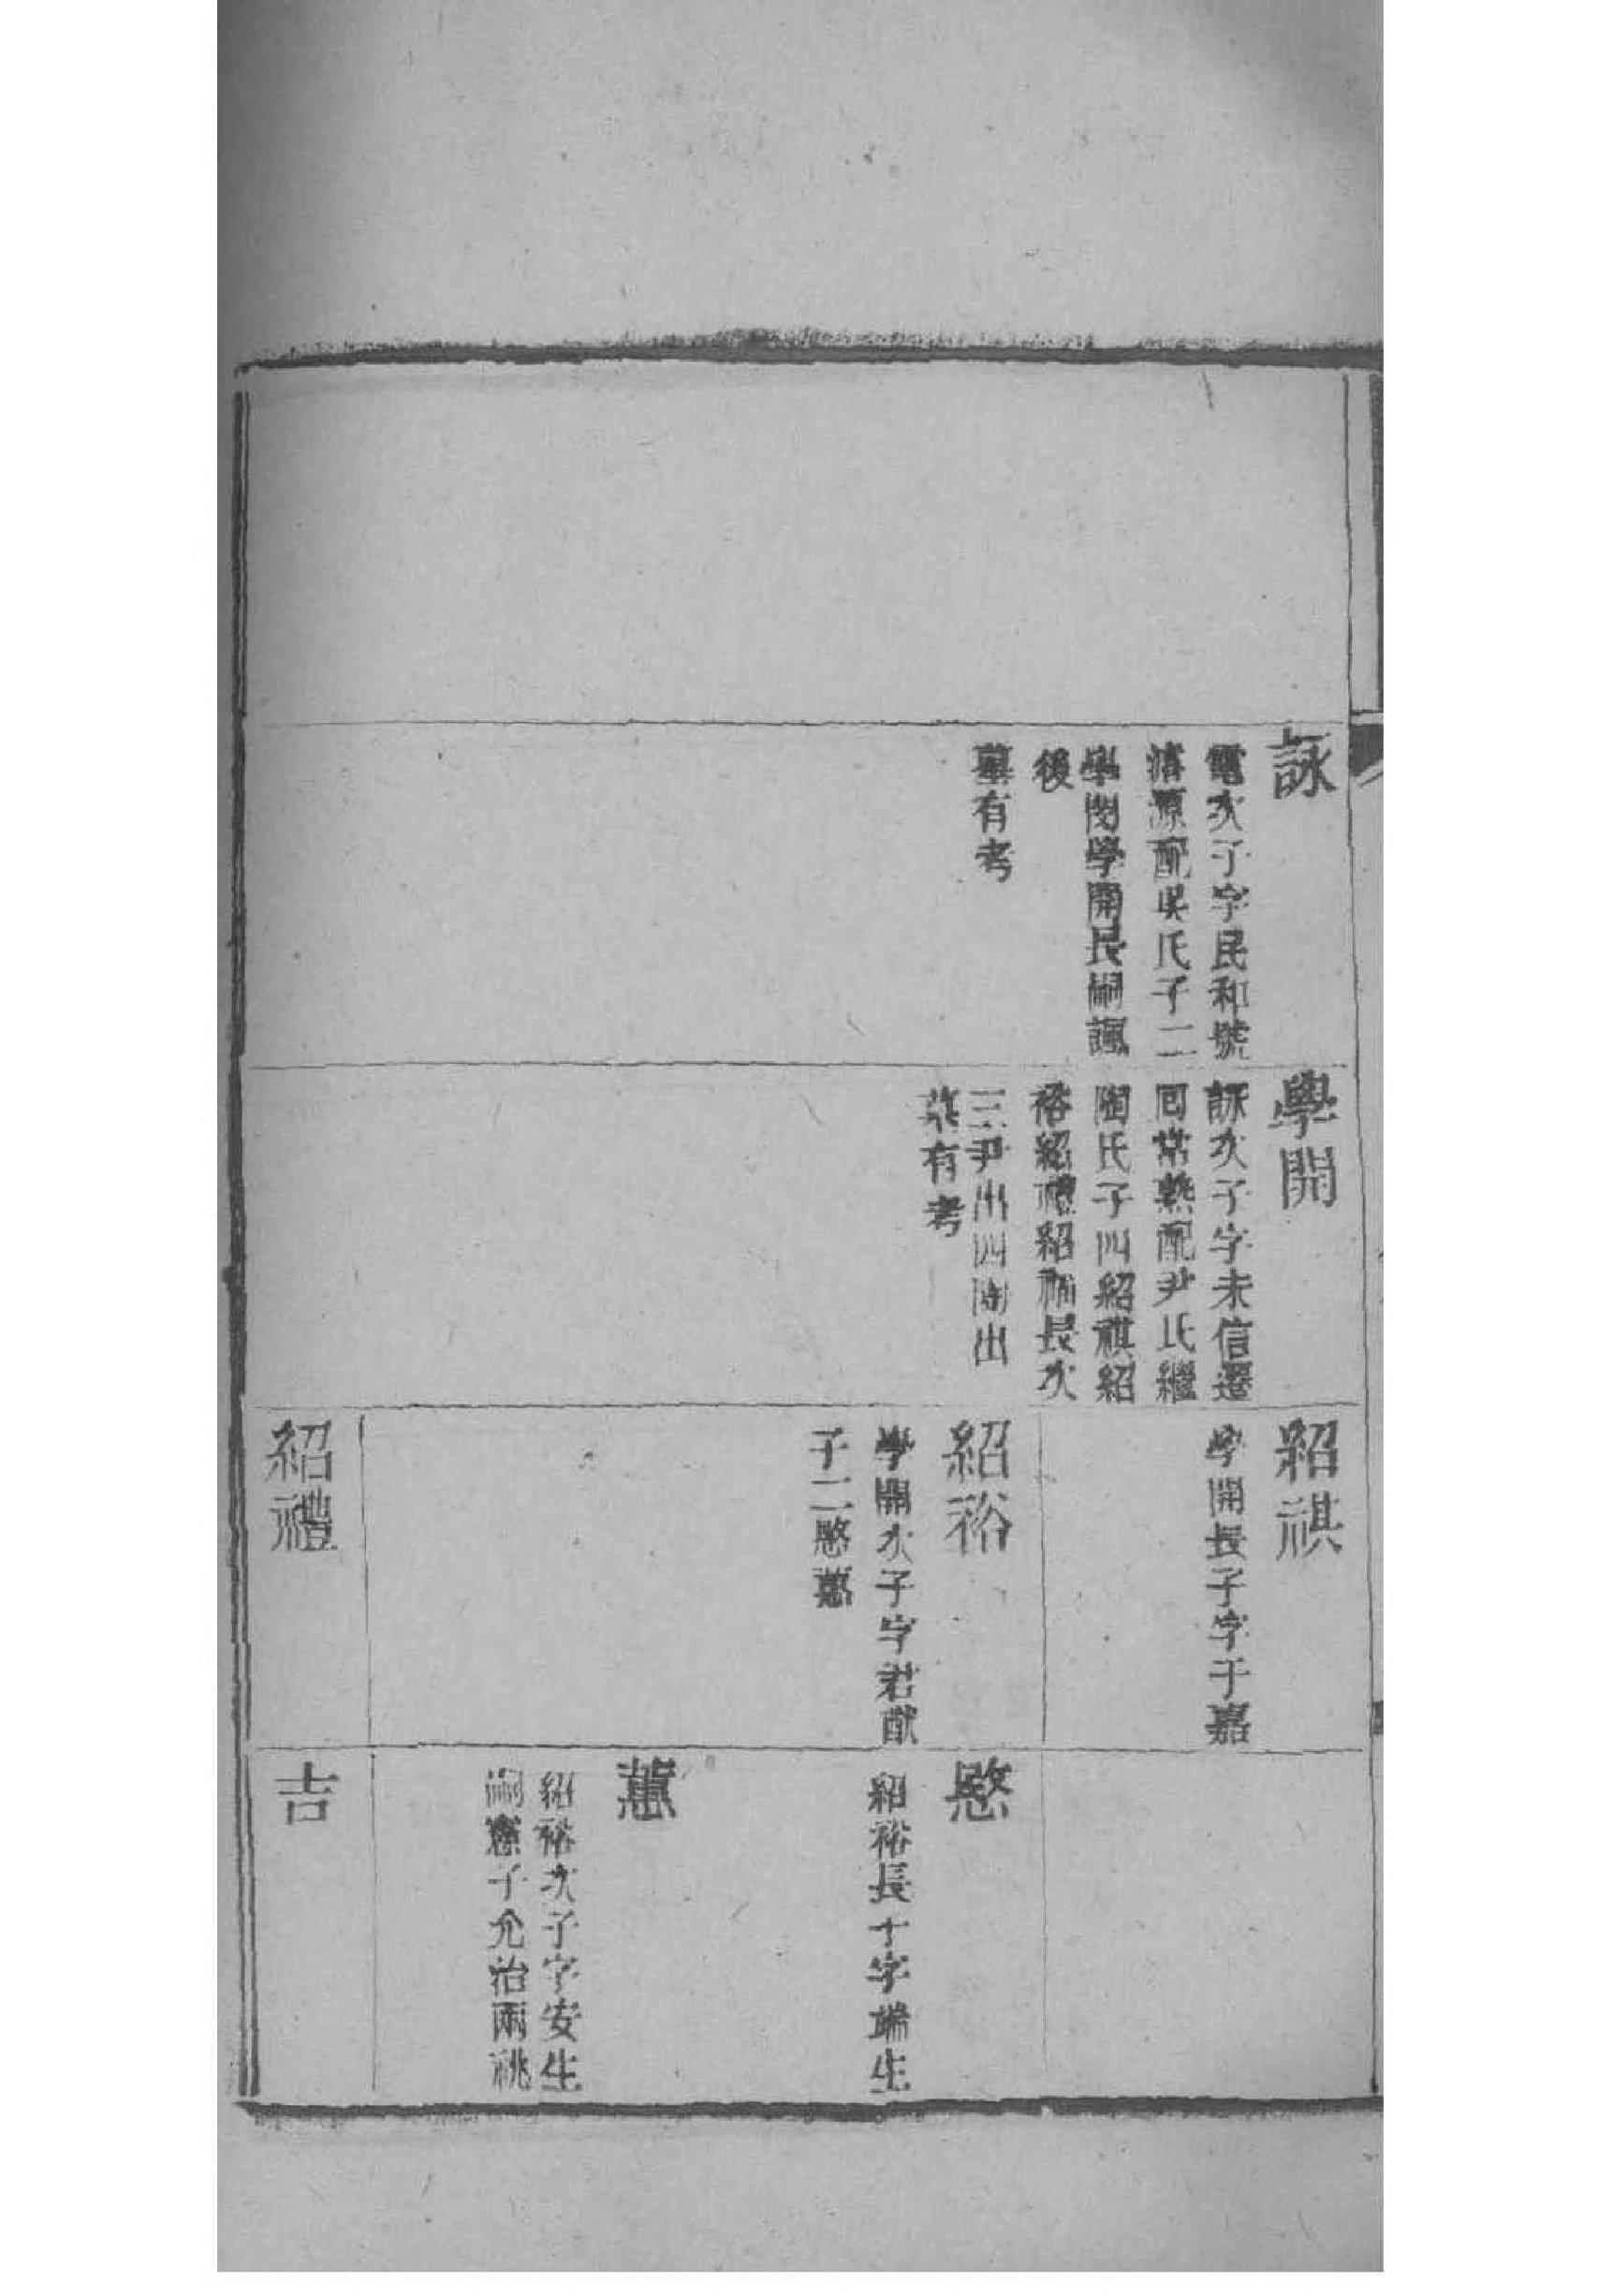 詠
電次子字民和號
清源配吳氏子二
學閔學開長嗣諷
後
墓有考
學開
詠次子字未信遷
回常熟配尹氏繼
陶氏子四紹祺紹
裕紹禮紹祹長次
三尹出四陶出
墓有考
紹祺
學開長子字于嘉
紹裕
學開次子字君猷
子二愍蕙
紹禮
愍
紹裕長子字端生
蕙
紹裕次子字安生
嗣憲子允治兩祧
吉